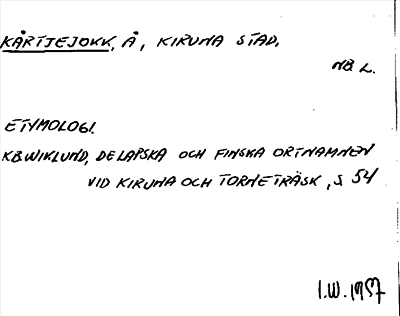 KÅRTJEJOKK, Å, KIRUNA STAD.
NB L.
ETYMOLOGI.
K.B. WIKLUND, DE LAPSKA OCH FINSKA ORTNAMNEN
VID KIRUNA OCH TORNETRÄSK, S 54
I.W. 1957